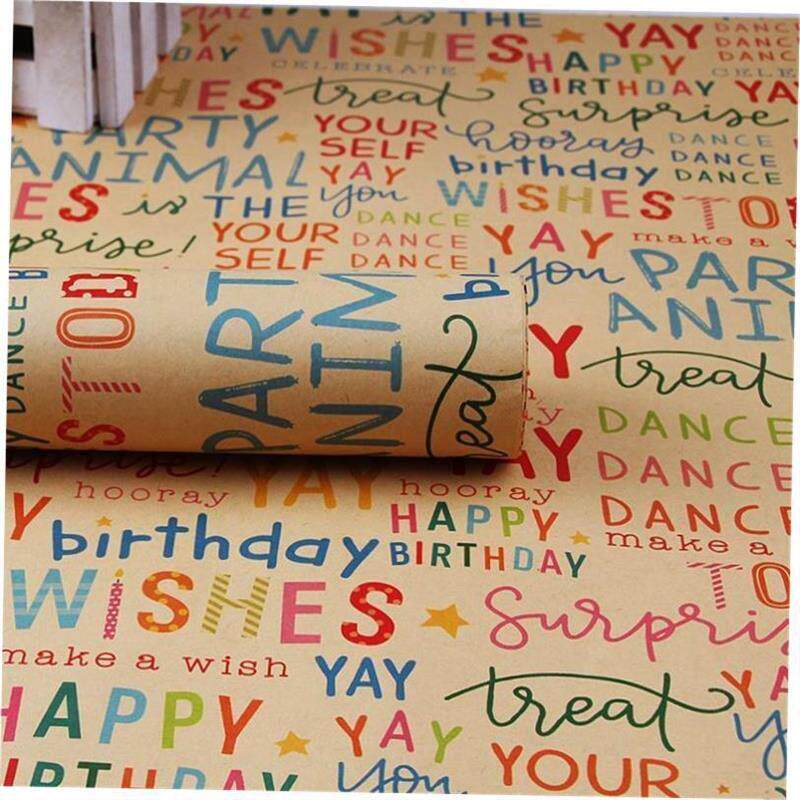 is THE
WISHES YAY DANCE
DANCE
DANCE
CELEBRATE HAPPY
BIRTHDAY YAY
HES treat Surprise
PARTY YOUR hooray DANCE
ANIMAL SELF birthday DANCE
YAY DANCE
ES is THE you WISHES TO
DANCE
prise! YOUR DANCE YAY make a
SELF DANCE
you PAR
ANI
DANCE
STO
PART
ANIM
treat
YAY treat
DANCE
YAY DANCE
hooray YAY hooray DANCE
HAPPY make a
birthday BIRTHDAY
WISHES Surpris
TO
make a wish YAY treat
HAPPY YAY YOUR
IRTHDAY you